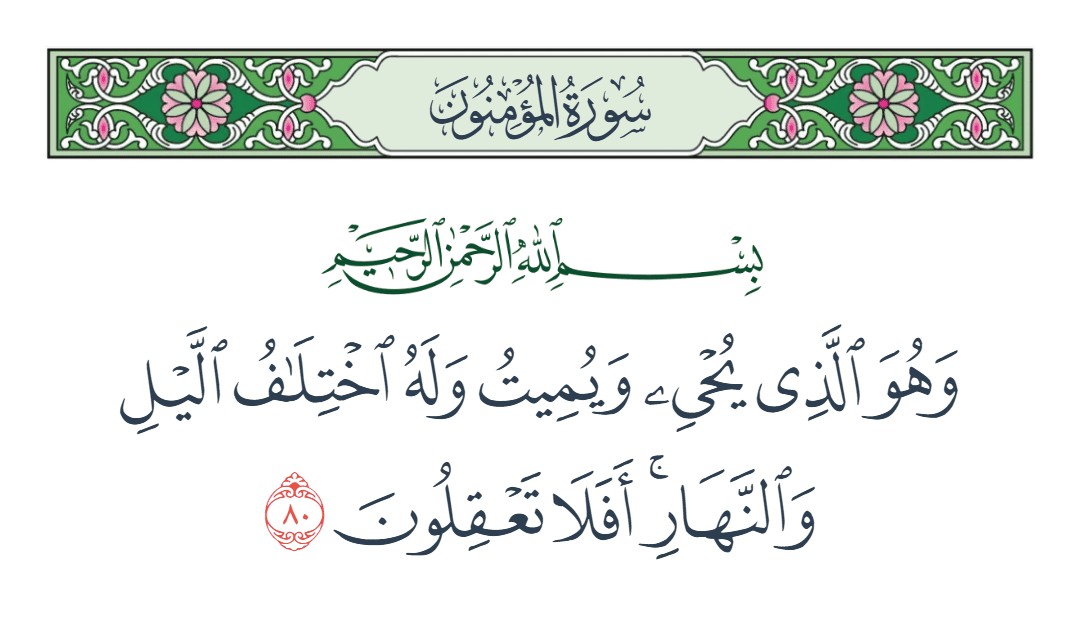 سُورَةُ الْمُؤْمِنُونَ
بِسْمِ ٱللَّهِ ٱلرَّحْمَٰنِ ٱلرَّحِيمِ
وَهُوَ ٱلَّذِى يُحْىِۦ وَيُمِيتُ وَلَهُ ٱخْتِلَٰفُ ٱلَّيْلِ
وَٱلنَّهَارِ ۚ أَفَلَا تَعْقِلُونَ ٨٠